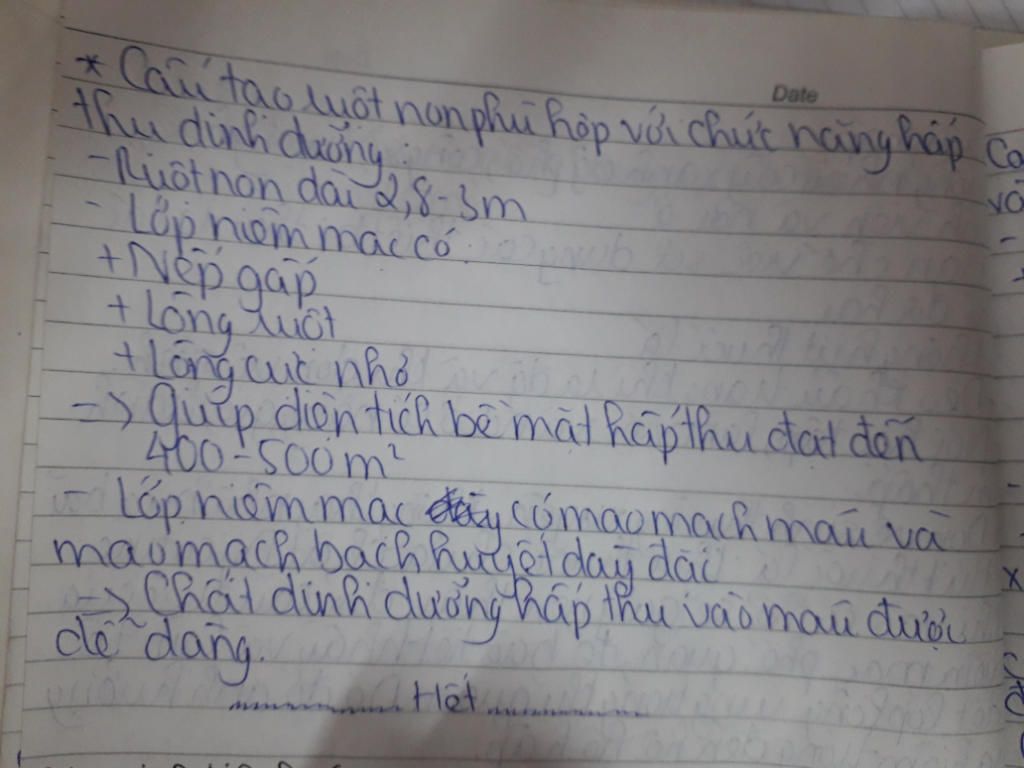 Date
* Cấu tạo ruột non phù hợp với chức năng hấp
thu dinh dưỡng:
- Ruột non dài 2,8-3m
- Lớp niêm mạc có:
+ Nếp gấp
+ Lông ruột
+ Lông cực nhỏ
-> Giúp diện tích bề mặt hấp thu đạt đến
400-500m²
- Lớp niêm mạc có mao mạch máu và
mao mạch bạch huyết dày đặc
-> Chất dinh dưỡng hấp thu vào máu được
dễ dàng.
Hết